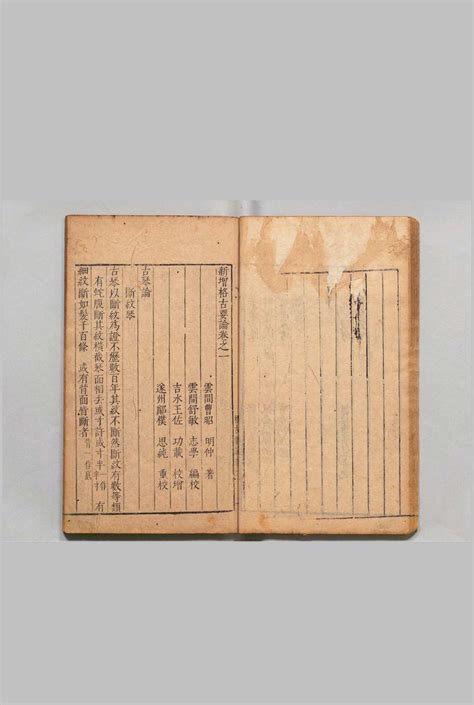 新增格古要論卷之一
雲間曹昭 明仲 著
雲間舒敏 志學 編校
吉水王佐 功載 校增
遂州鄭樸 思純 重校
古琴論
斷紋琴
古琴以斷紋為證不歷數百年其紋不斷然斷紋有數等類
有蛇腹斷其紋橫截琴面相去或寸許或寸半寸 有
細紋斷如髮千百條 或有背面皆斷者